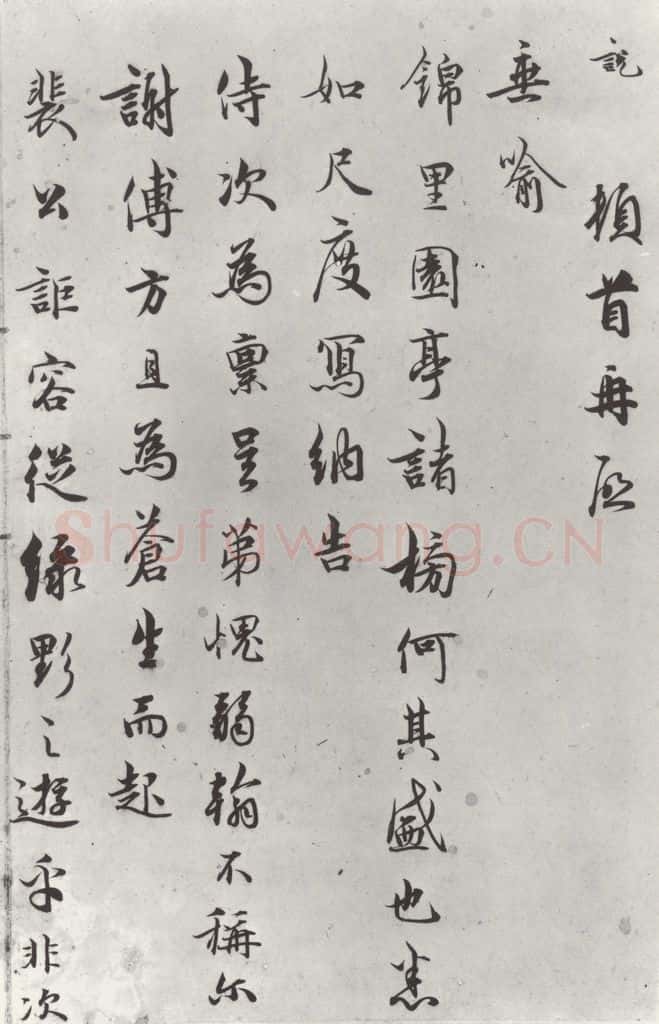 說 頓首再启
垂喻
錦里園亭諸榜何其盛也悉
如尺度寫納告
侍次為稟呈第愧弱翰不稱尔
謝傅方且為蒼生而起
裴公詎容從綠野之遊乎非次
Shufawang.CN